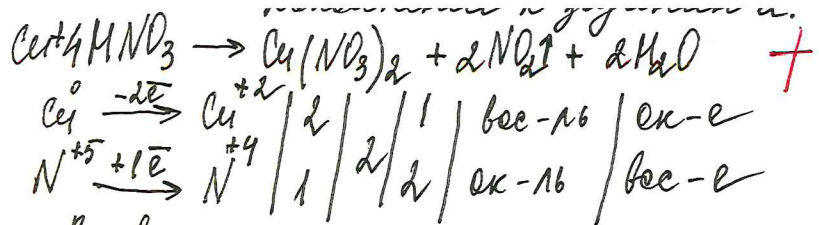 Cu+4HNO₃ → Cu(NO₃)₂ + 2NO₂↑ + 2H₂O +
Cu⁰ -2e̅→ Cu⁺² | 2 | | 1 | вос-ль | ок-е
N⁺⁵ +1e̅→ N⁺⁴ | 1 | 2 | 2 | ок-ль | вос-е